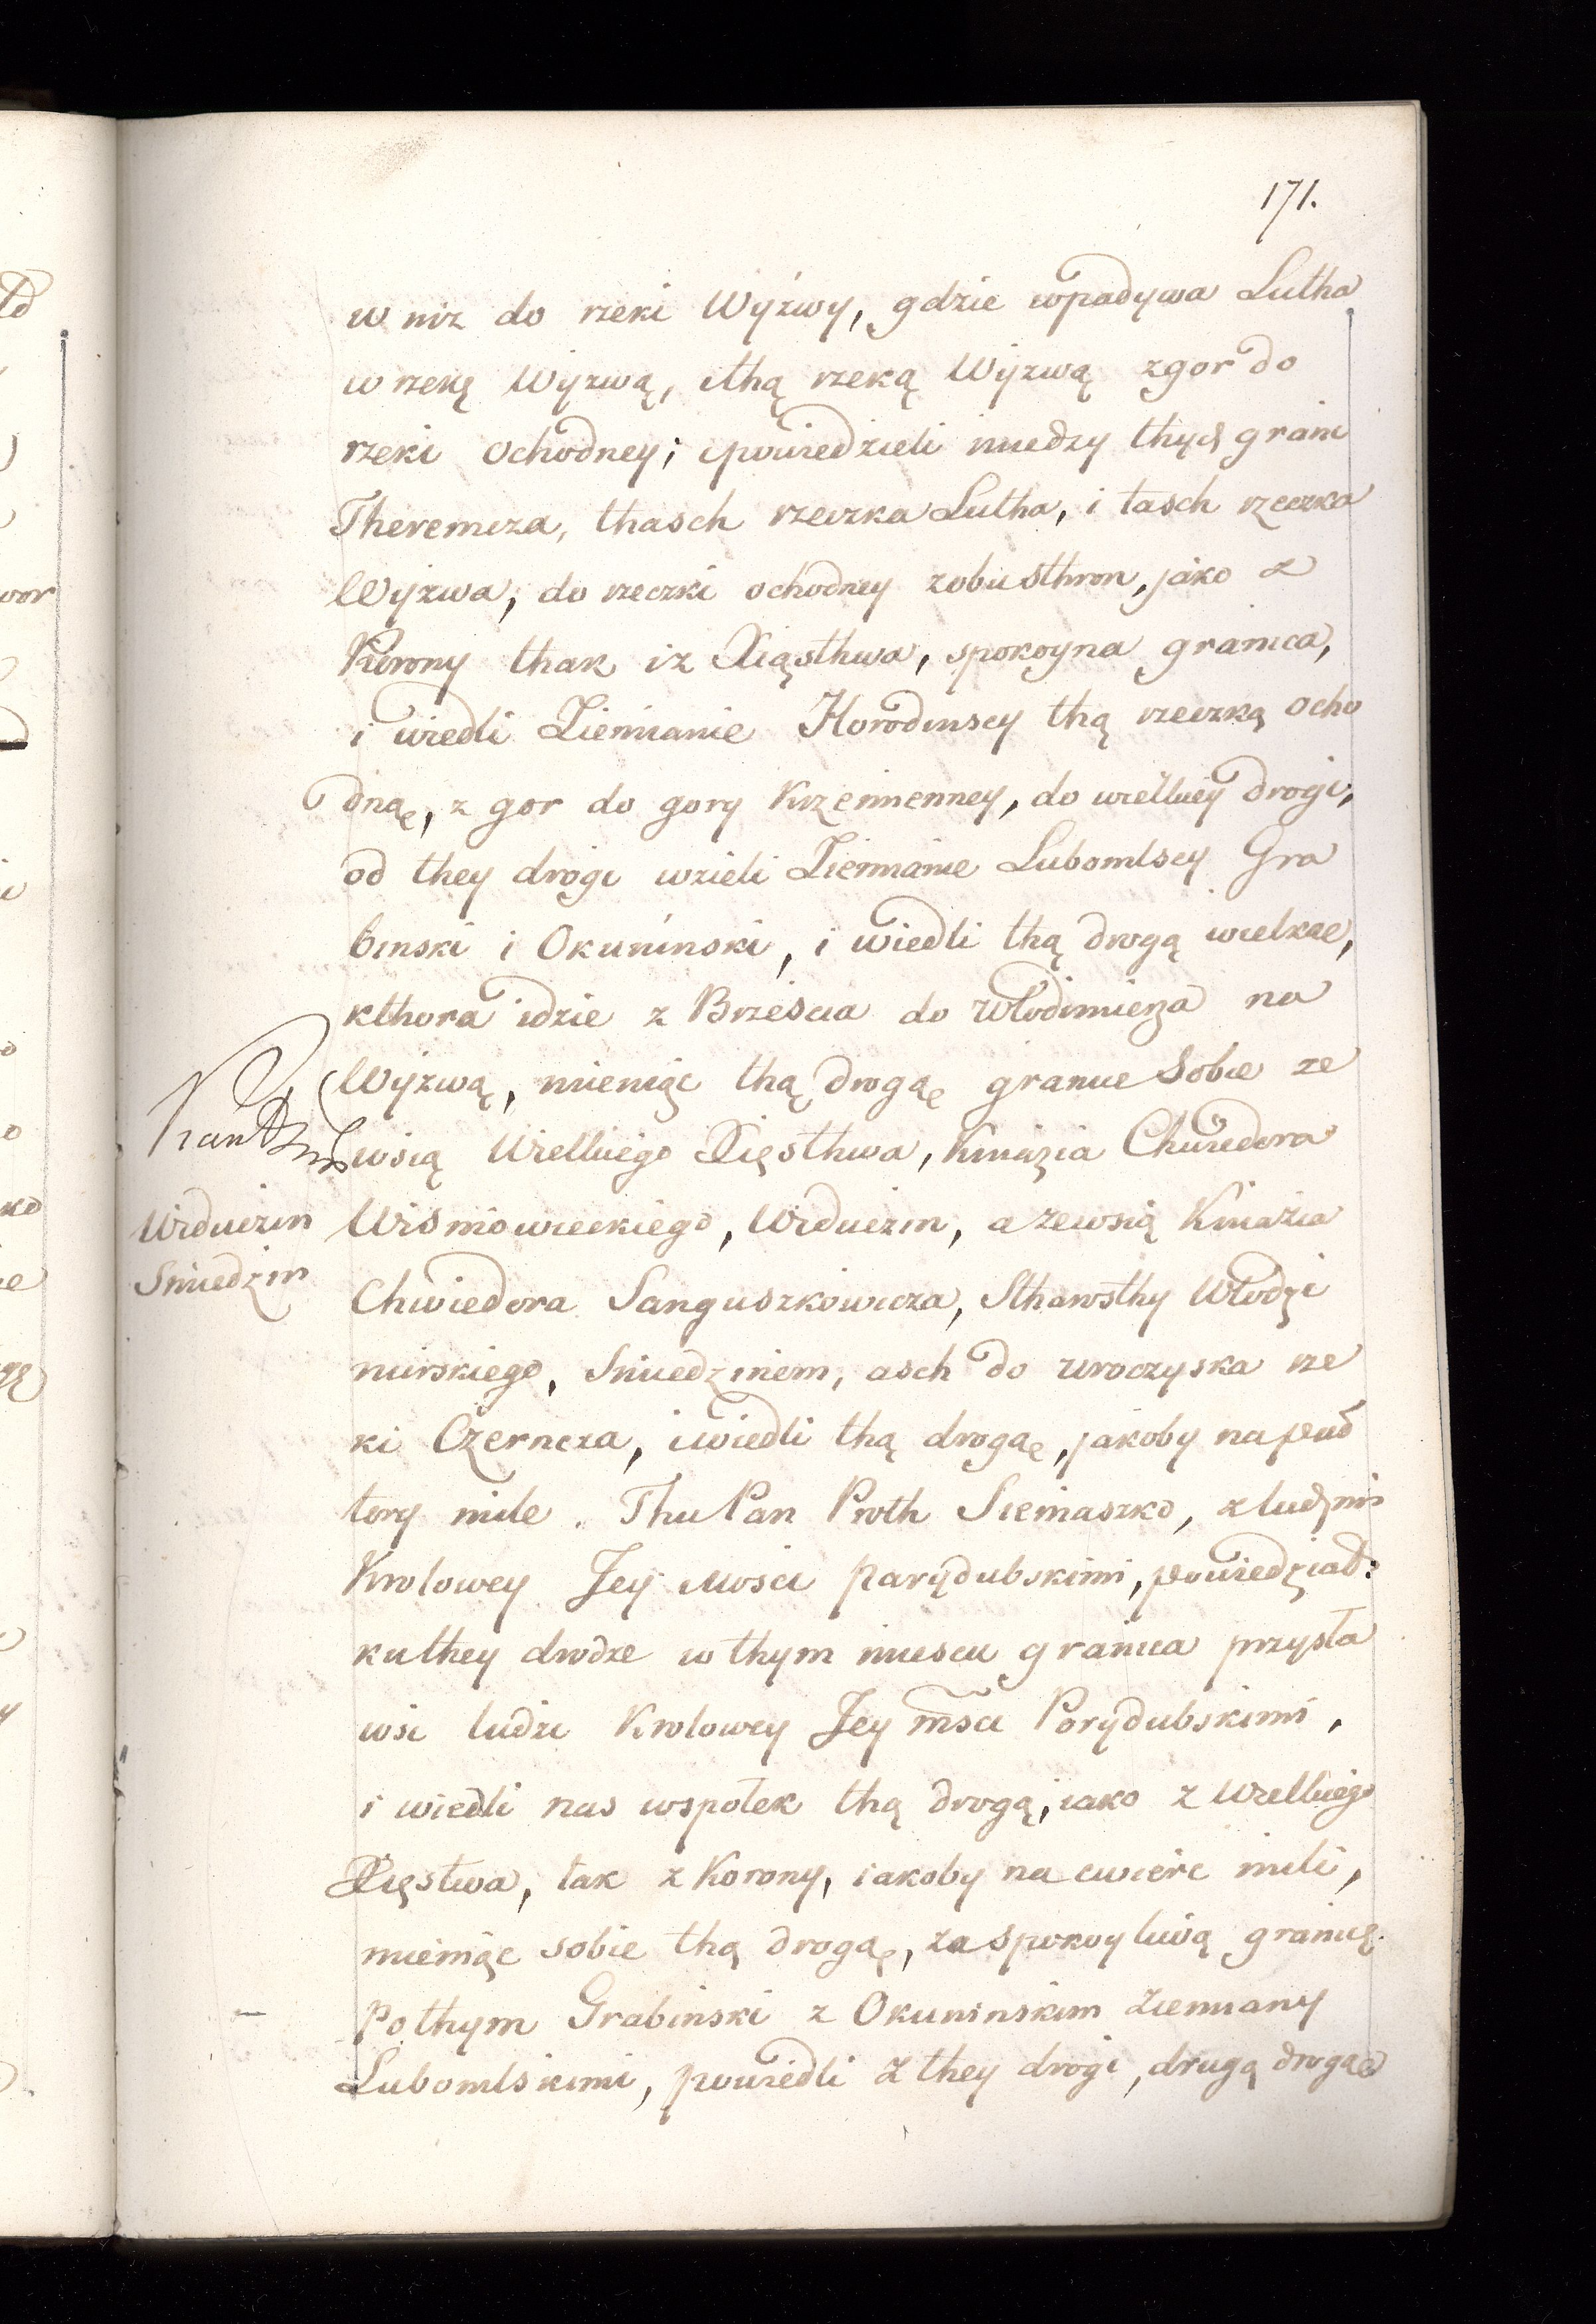 171.
w niz do rzeki Wyżwy, gdzie wpadywa Lutha
w rzekę Wyzwą, ithą rzeką Wyzwą zgor do
rzeki ochodney; ipowiedzieli miedzy thych granic
Theremcza, thasch rzeczka Lutha, i tasch rzeczka
Wyzwa, do rzeczki ochodney zobusthron, jako z
Korony thak iz Xięsthwa, spokoyna granica,
i wiedli Ziemianie Horodinscy thą rzeczką Ocho
dnąę, z gor do gory Krzemienney, do wielkiey drogi,
od they drogi wzieli Ziemianie Lubomlscy Gra
binski i Okuninski, i wiedli thą drogą wielkaę,
kthora idzie z Brześcia do Włodimierza na
Wyzwą, mieniąc thą drogąę granice Sobie ze
wsią Wielkiego Xięsthwa, Kniazia Chwiedora
Widucizin Wisniowieckiego, Widucizin, a zewsią Kniazia
Sniedzin Chwiedora Sanguszkowicza, Stharosthy Włodzi
mirskiego, Sniedzinem, asch do uroczyska rze
ki Czerncza, iwiedli thą drogąę, jakoby na puł
tory mile. Thu Pan Proth Siemaszko, z ludzmi
Krolowey Jey Mosci parydubskimi, powiedział:
kuthey drodze w thym miescu granica przysta
wsi ludzi Krolowey Jey msci Porydubskimi,
i wiedli nas wspołek thą drogą, iako z Wielkiego
Xięstwa, tak z Korony, iakoby na cwierc mili,
mieniąc sobie thą drogąę, za spokoyliwą granicę.
Pothym Grabinski z Okuninskim Ziemiany
Lubomlskimi, powiedli z they drogi, drugą drogąę